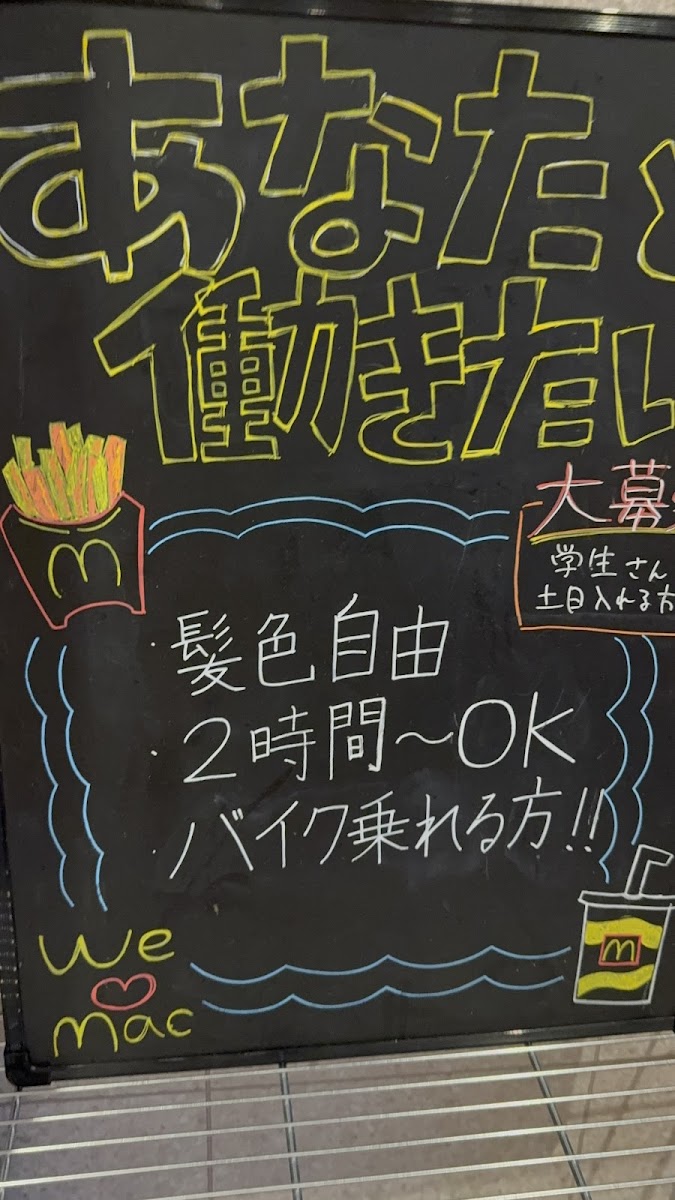 あなたと
働きたい
大募
学生さん
土日入れる方
・髪色自由
・2時間〜OK
・バイク乗れる方!!
We
♡
mac
m
m